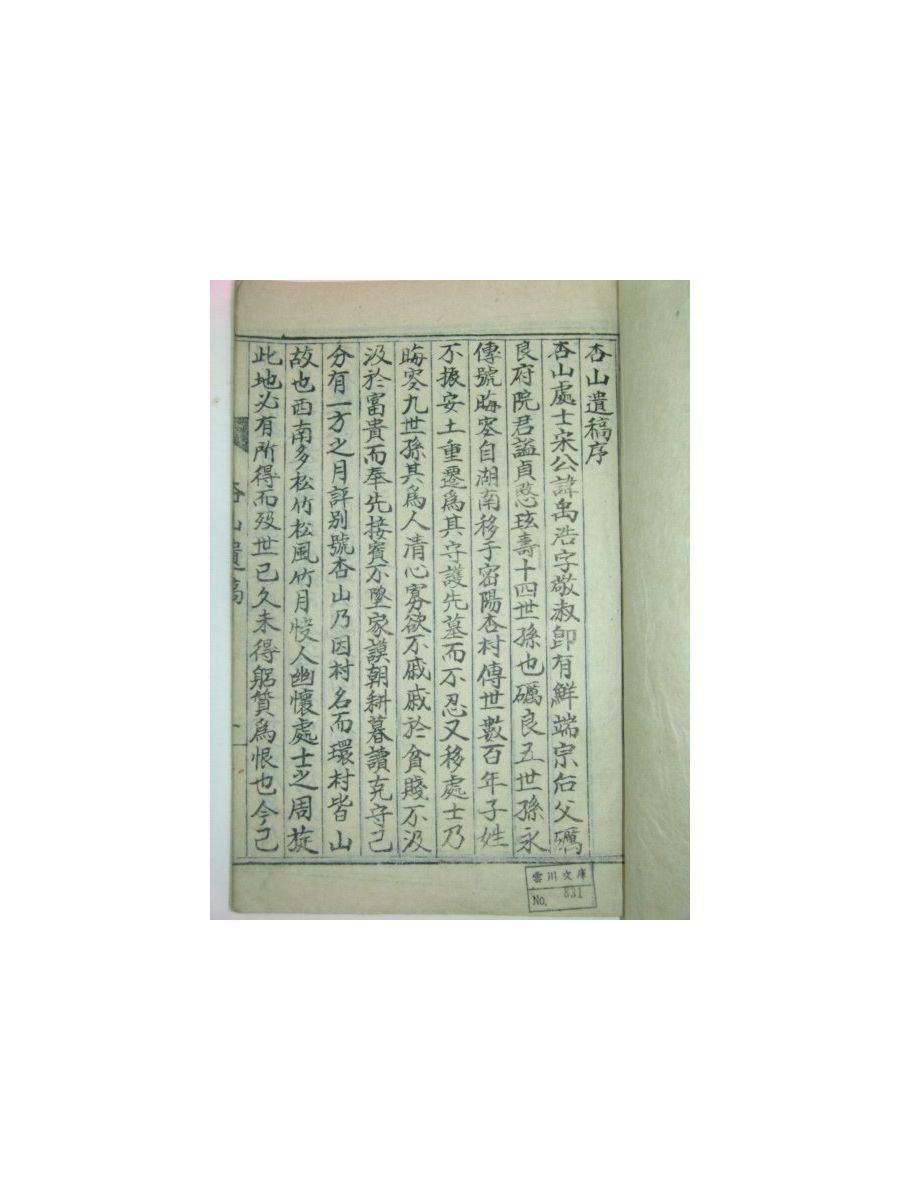 杏山遺稿序
杏山處士宋公諱禹浩字敬叔卽有鮮端宗后父礪
良府院君謚貞愍玹壽十四世孫也礪良五世孫永
傳號晦窓自湖南移于密陽杏村傳世數百年子姓
不振安土重遷爲其守護先墓而不忍又移處士乃
晦窓九世孫其爲人清心寡欲不戚戚於貧賤不汲
汲於富貴而奉先接賓不墜家謨朝耕暮讀克守己
分有一方之月評别號杏山乃因村名而環村皆山
故也西南多松竹松風竹月悏人幽懷處士之周旋
此地必有所得而歿世已久未得躬質爲恨也今己
杏山遺稿
一
雲川文庫
No. 831